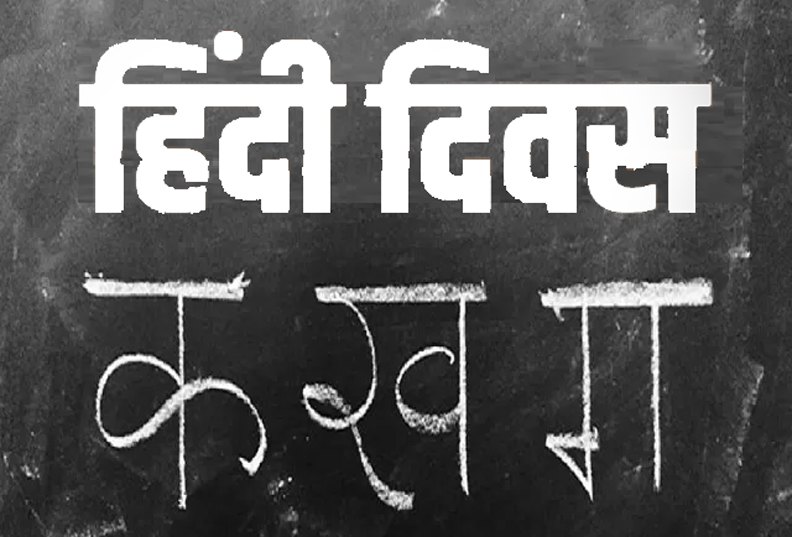 हिंदी दिवस
क ख ग